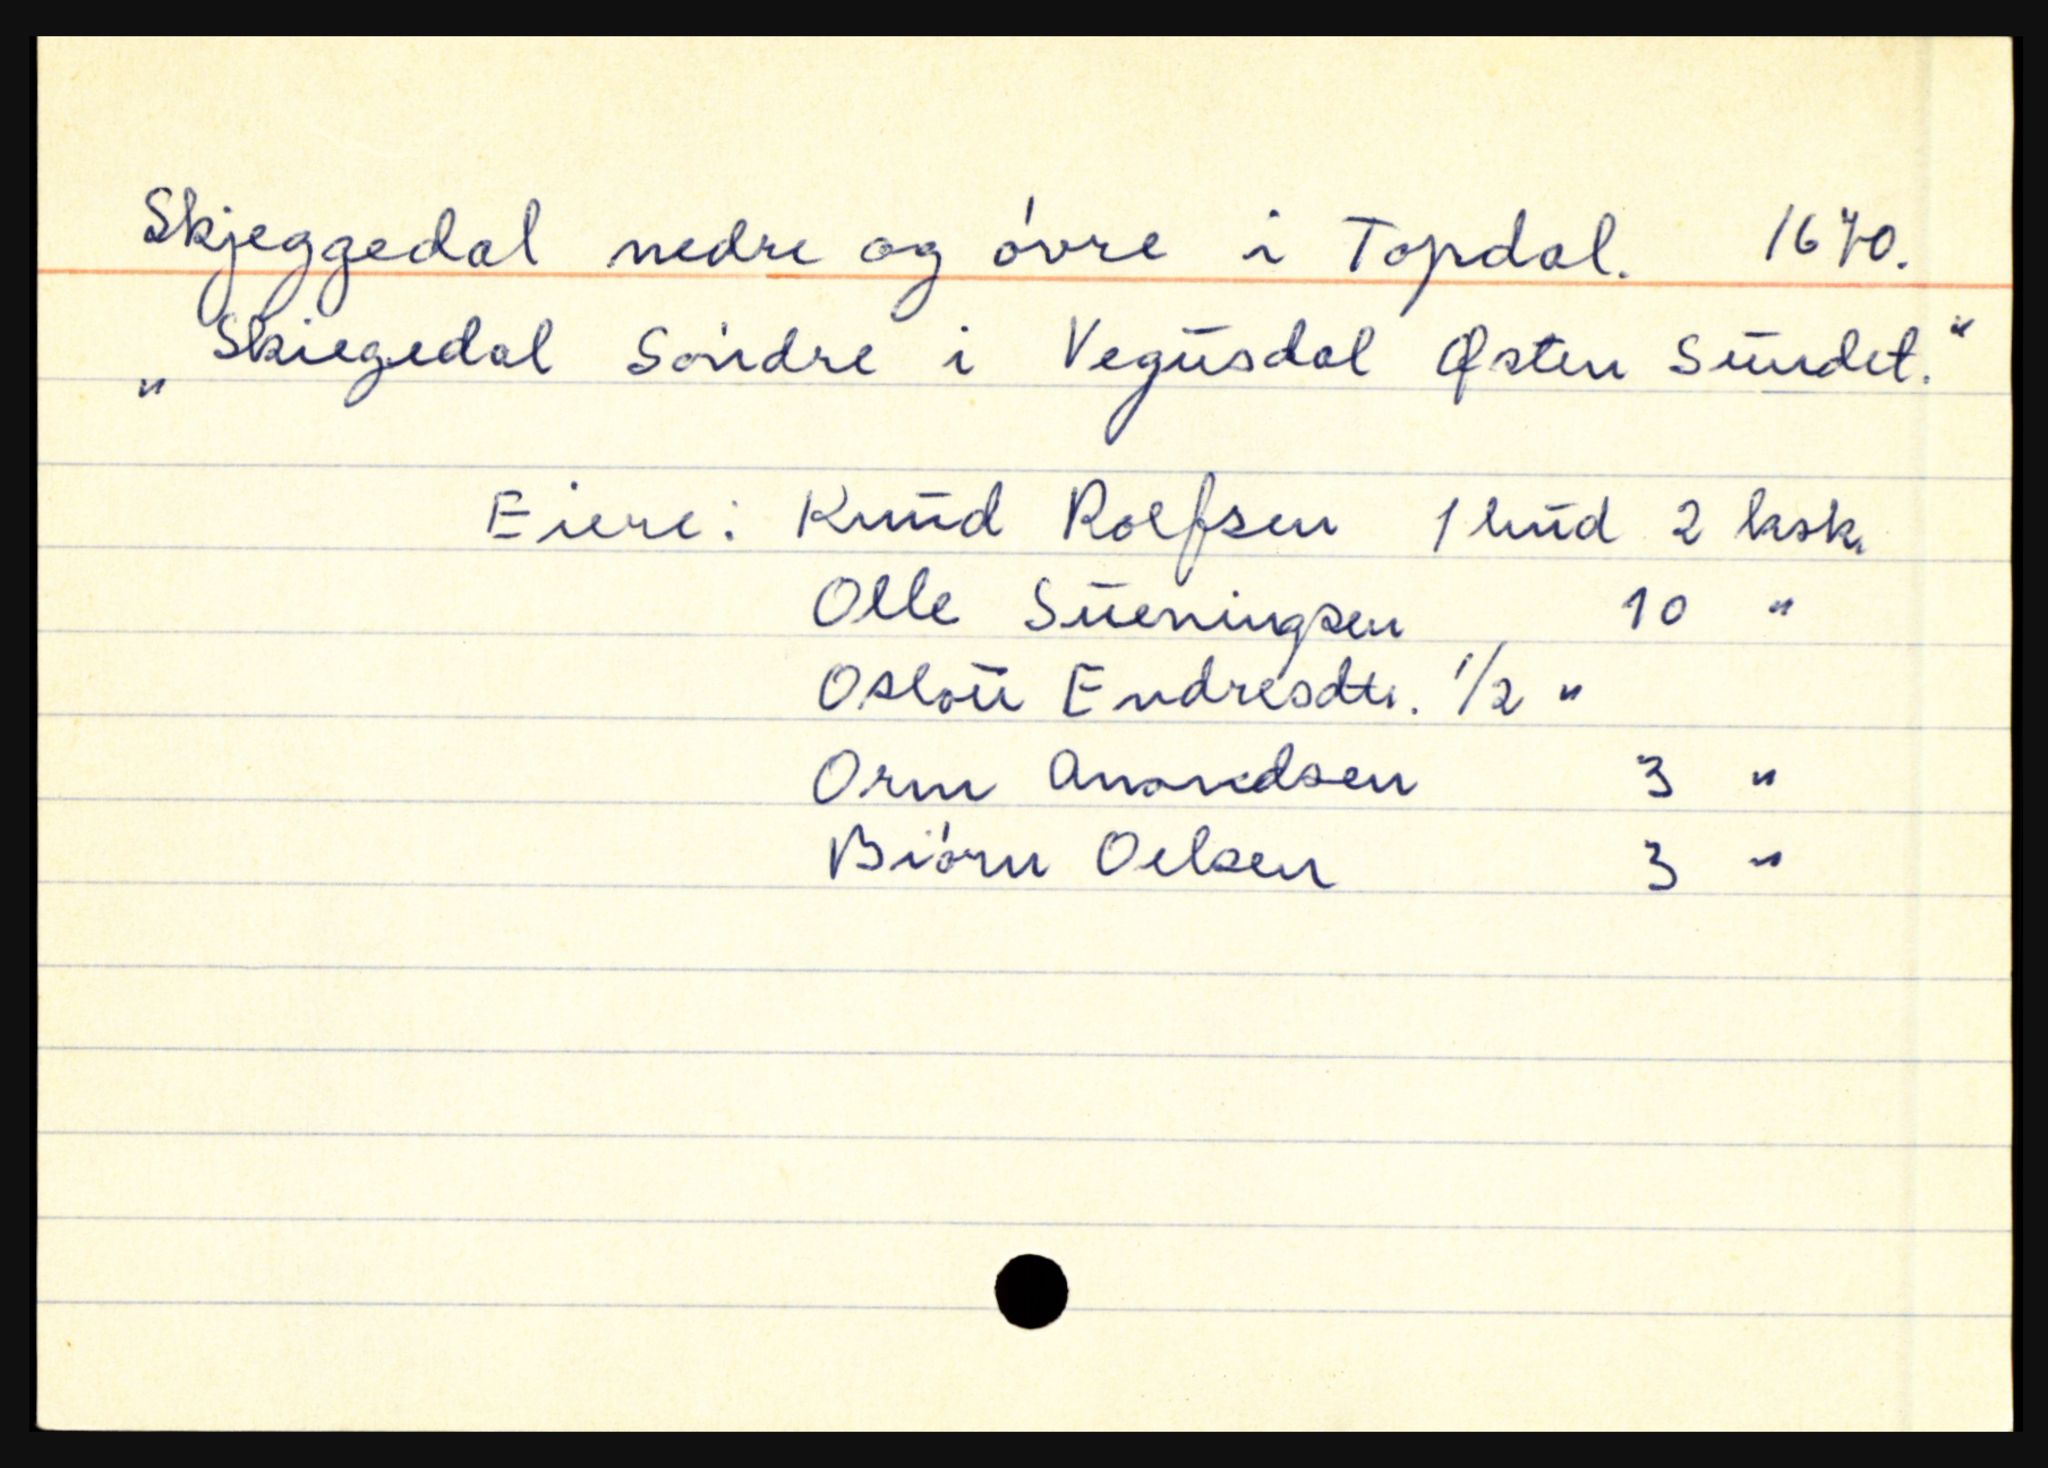 Skjeggedal nedre og óvre i Topdal. 1670.
„Skiegedal Sóndre i Vegūsdal Østen Sūndet.“
Eiere: Knūd Roefsen 1 hūd 2 ksk.
Olle Sūeningsen 10 "
Osloū Endresdtr. 1/2 "
Orm Anondsen 3 "
Biórn Oelsen 3 "